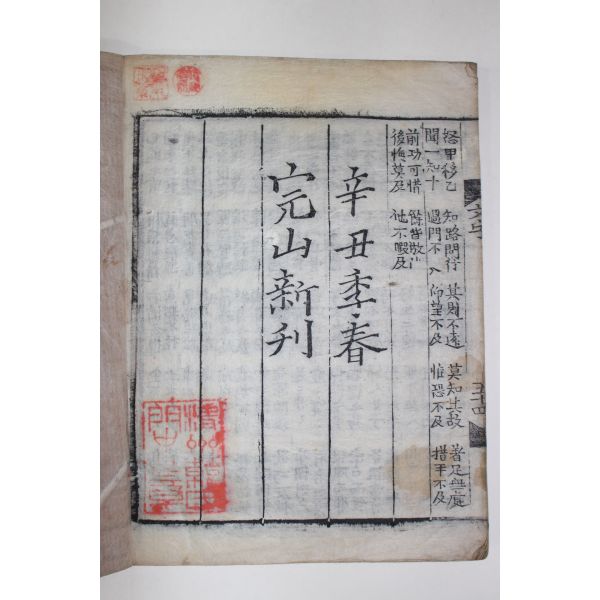 怒甲移乙 知路問行 其則不遠 莫知其故 著足無處
聞一知十 過門不入 仰望不及 惟恐不及 措手不及
前功可惜 餘皆倣此
後悔莫及 他不暇及
辛丑季春
完山新刊
五十四